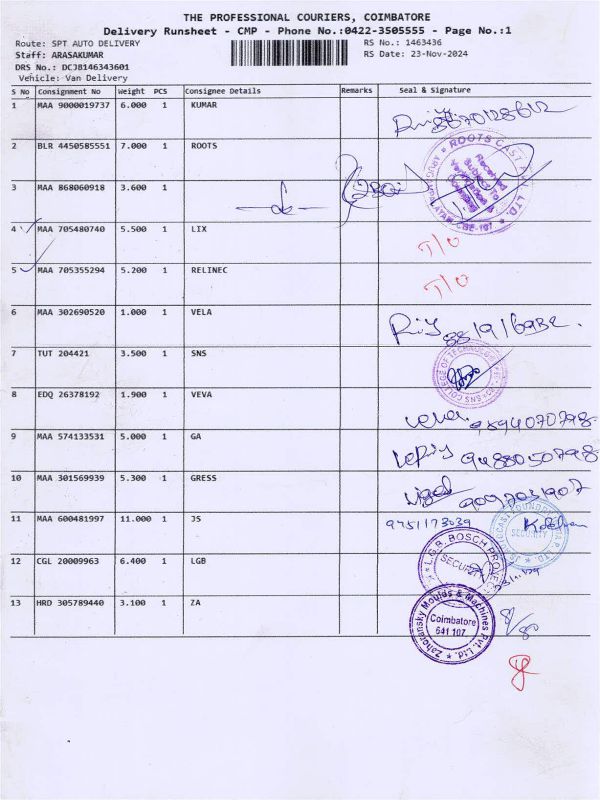 THE PROFESSIONAL COURIERS, COIMBATORE
Delivery Runsheet - CMP - Phone No.:0422-3505555 - Page No.:1
Route: SPT AUTO DELIVERY
RS No.: 1463436
Staff: ARASAKUMAR
RS Date: 23-Nov-2024
DRS No.: DCJ8146343601
Vehicle: Van Delivery
S No Consignment No Weight PCS Consignee Details Remarks Seal & Signature
1 MAA 9000019737 6.000 1 KUMAR
2 BLR 4450585551 7.000 1 ROOTS
ROOTS CAST PVT. LTD.
3 MAA 868060918 3.600 1
4 MAA 705480740 5.500 1 LIX T/O
5 MAA 705355294 5.200 1 RELINEC T/O
6 MAA 302690520 1.000 1 VELA
7 TUT 204421 3.500 1 SNS
SNS COLLEGE OF TECHNOLOGY
8 EDQ 26378192 1.900 1 VEVA
9894070798
9 MAA 574133531 5.000 1 GA
9488050798
10 MAA 301569939 5.300 1 GRESS
9097031907
11 MAA 600481997 11.000 1 JS 9751173039
SECURITY
12 CGL 20009963 6.400 1 LGB
L.G.B. BOSCH
SECURITY
13 HRD 305789440 3.100 1 ZA
Zahoransky Moulds & Machines Pvt. Ltd.
Coimbatore
641 107.